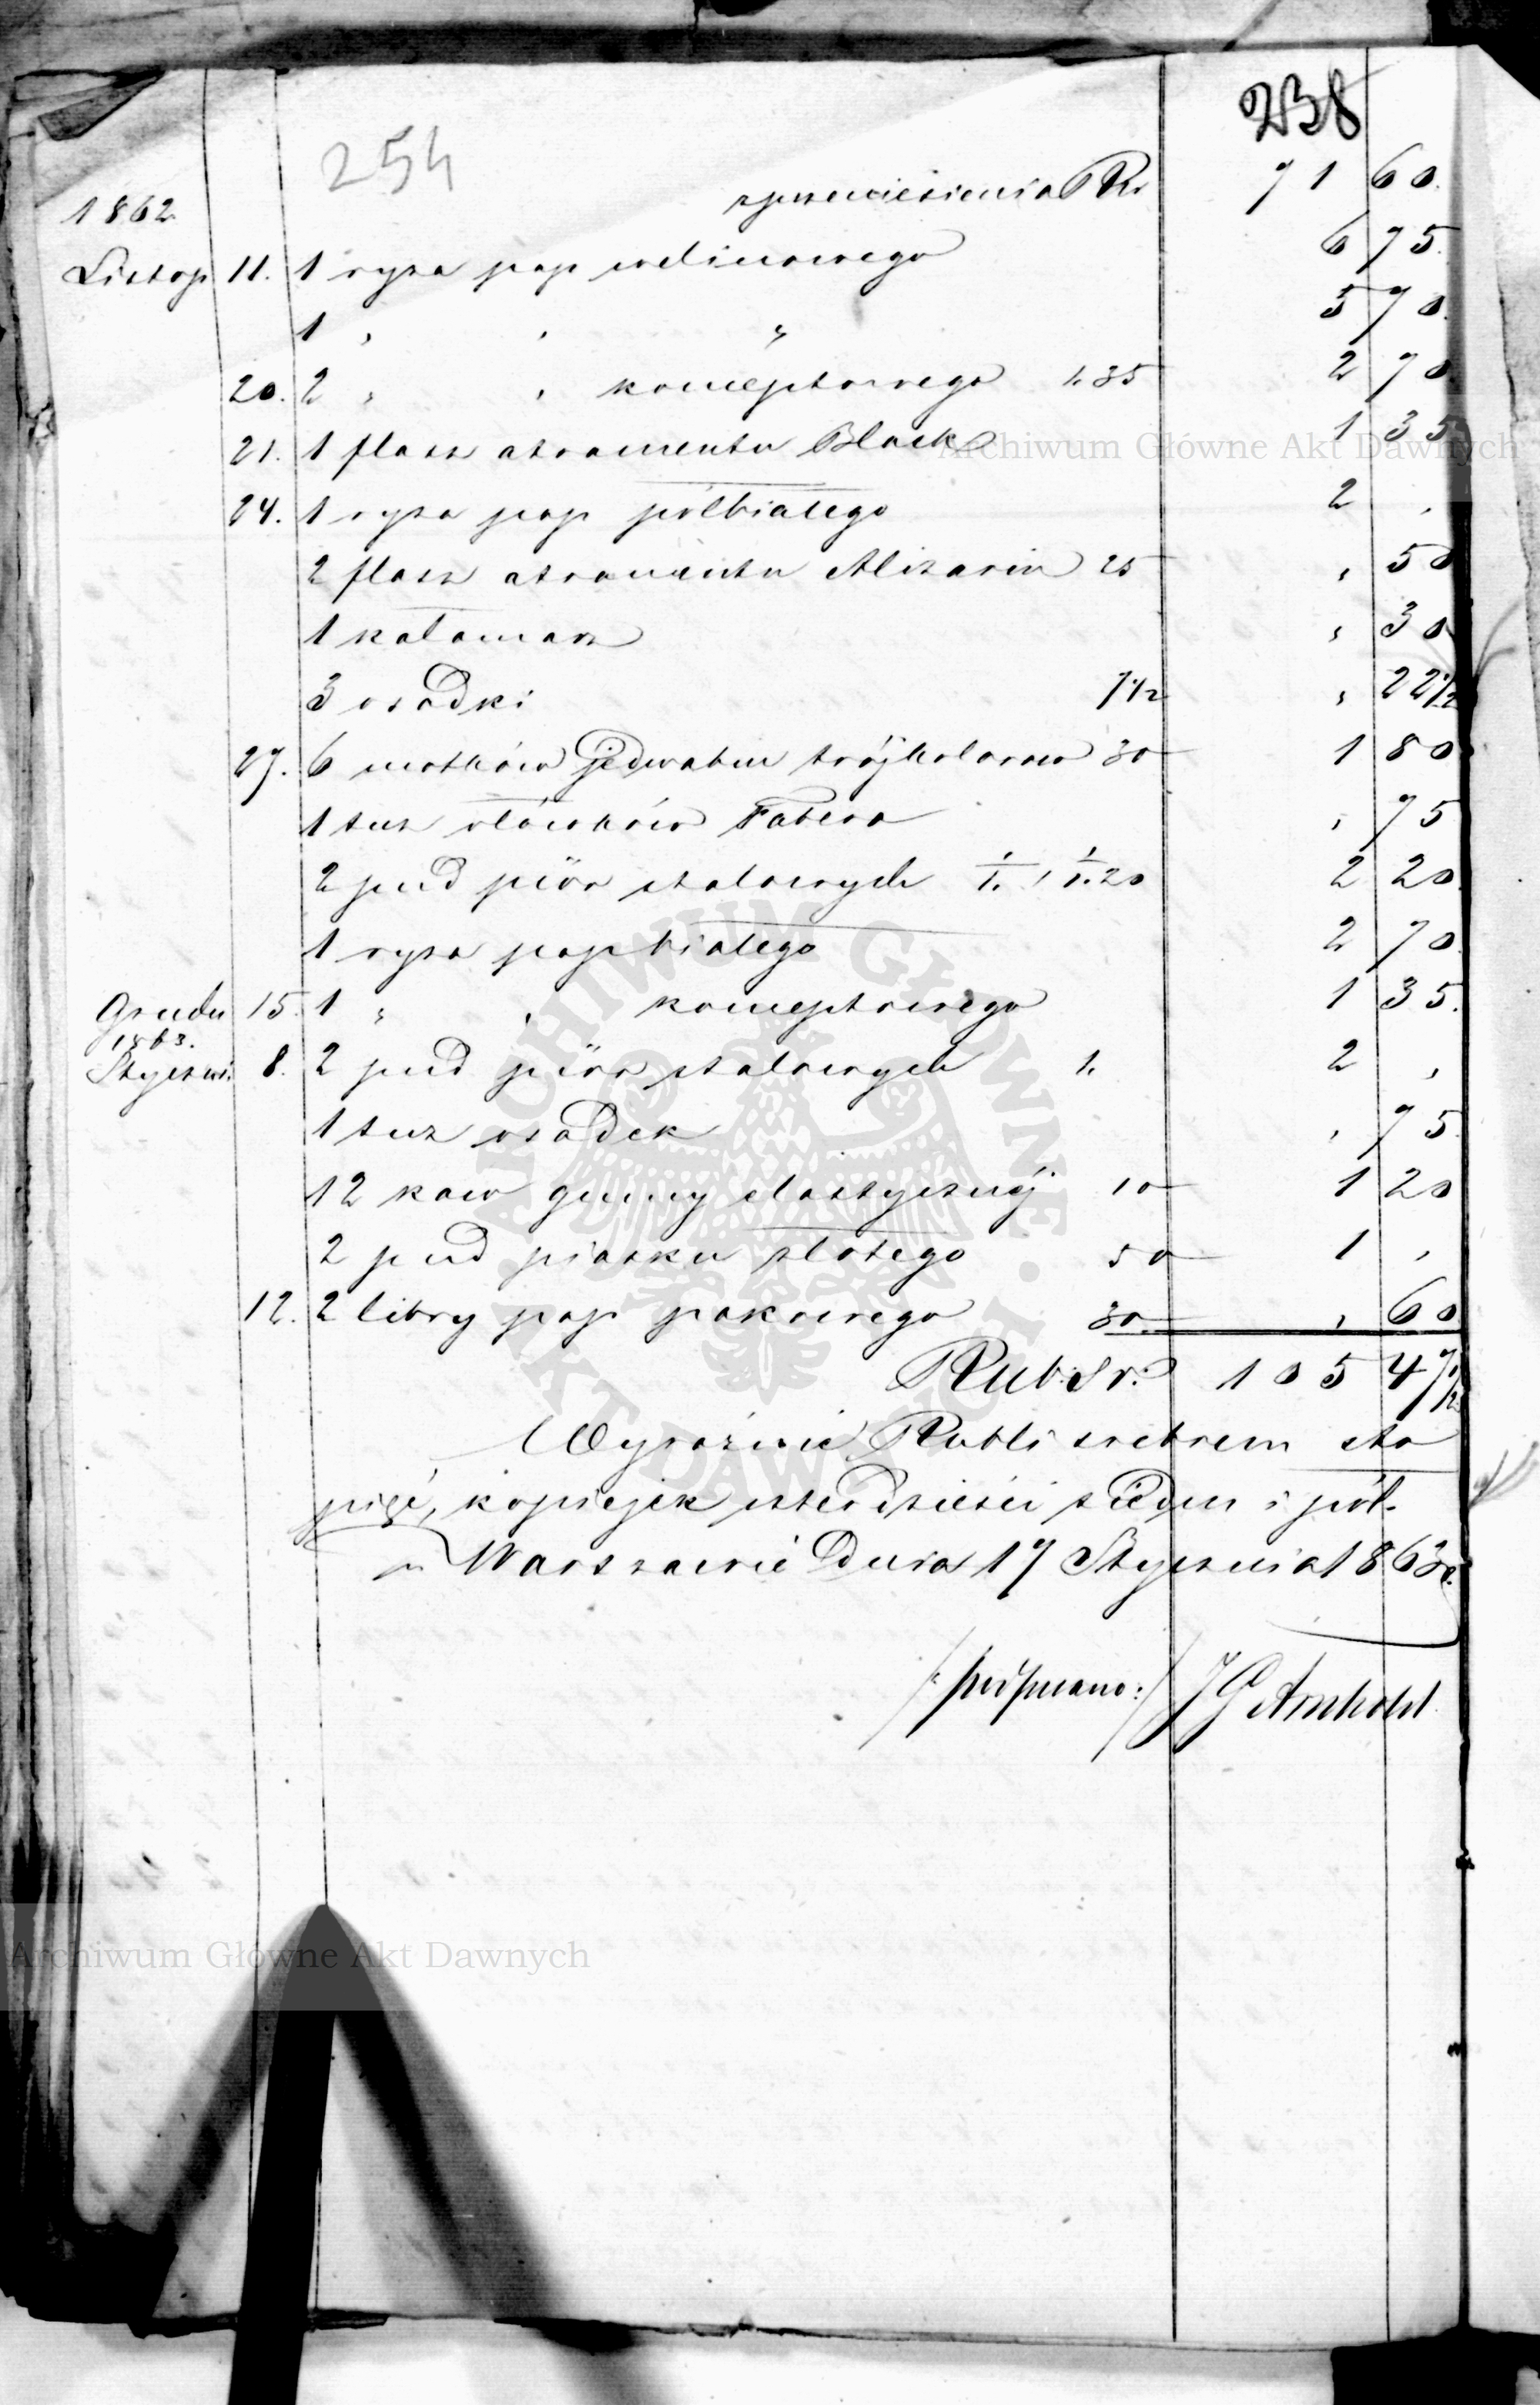 238
254
z przeniesienia Rs 71 60.
1862
Listop 11. 1 ryza pap welinowego 6 75.
1 " " " 5 70.
20. 2 " " konceptowego 1.35 2 70
21. 1 flasz atramentu Black 1 35
24. 1 ryza pap półbiałego 2 "
2 flasz atramentu Alizarin 25 " 50
1 kałamarz " 30
3 osadki 7 1/2 " 22 1/2
27. 6 motków jedwabiu trójkolorow 30 1 80
1 tuz ołówków Fabera " 75
2 pud piór stalowych 1/1. 1/1.20 2 20
1 ryza pap białego 2 70
Grudn 15. 1 " " konceptowego 1 35.
1863.
Styczni. 8. 2 pud piór stalowych 1. 2 "
1 tuz osadek " 75
12 kaw gumy elastycznéj 10 1 20
2 pud piasku złotego 50 1 "
12. 2 libry pap pakowego 30 " 60
Rub: Sr. 105 47 1/2
Wyraźnie Rubli srebrem sto
pięć, kopiejek czterdzieści siedm i pół.
w Warszawie Dnia 17 Stycznia 1863 r.
/: podpisano :/ J G Arnhold
Archiwum Główne Akt Dawnych
ARCHIWUM GŁÓWNE AKT DAWNYCH
Archiwum Główne Akt Dawnych